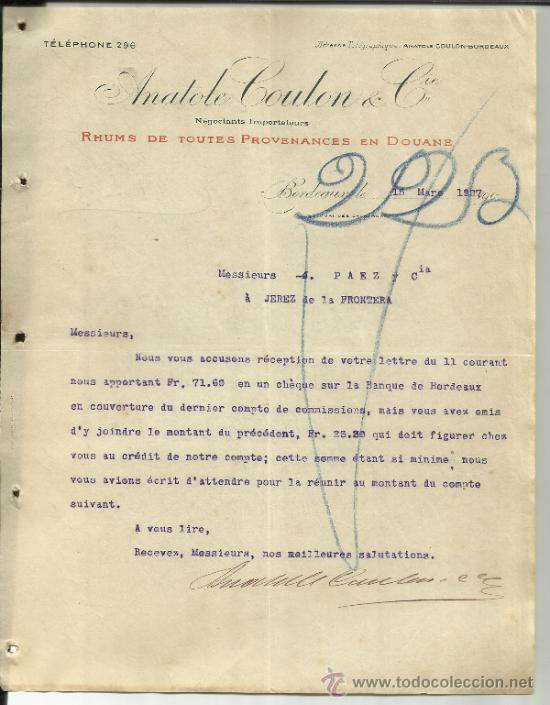 TÉLÉPHONE 296
Adresse Télégraphique: ANATOLE COULON-BORDEAUX
Anatole Coulon & Cie
Négociants Importateurs
RHUMS DE TOUTES PROVENANCES EN DOUANE
Bordeaux, le 15 Mars 1907 190
Messieurs A. PAEZ y Cia
à JEREZ de la FRONTERA
Messieurs,
Nous vous accusons réception de votre lettre du 11 courant
nous apportant Fr. 71.60 en un chèque sur la Banque de Bordeaux
en couverture du dernier compte de commissions, mais vous avez omis
d'y joindre le montant du précédent, Fr. 25.20 qui doit figurer chez
vous au crédit de notre compte; cette somme étant si minime, nous
vous avions écrit d'attendre pour la réunir au montant du compte
suivant.
A vous lire,
Recevez, Messieurs, nos meilleures salutations.
Anatole Coulon & Cie
todocoleccion
http://www.todocoleccion.net